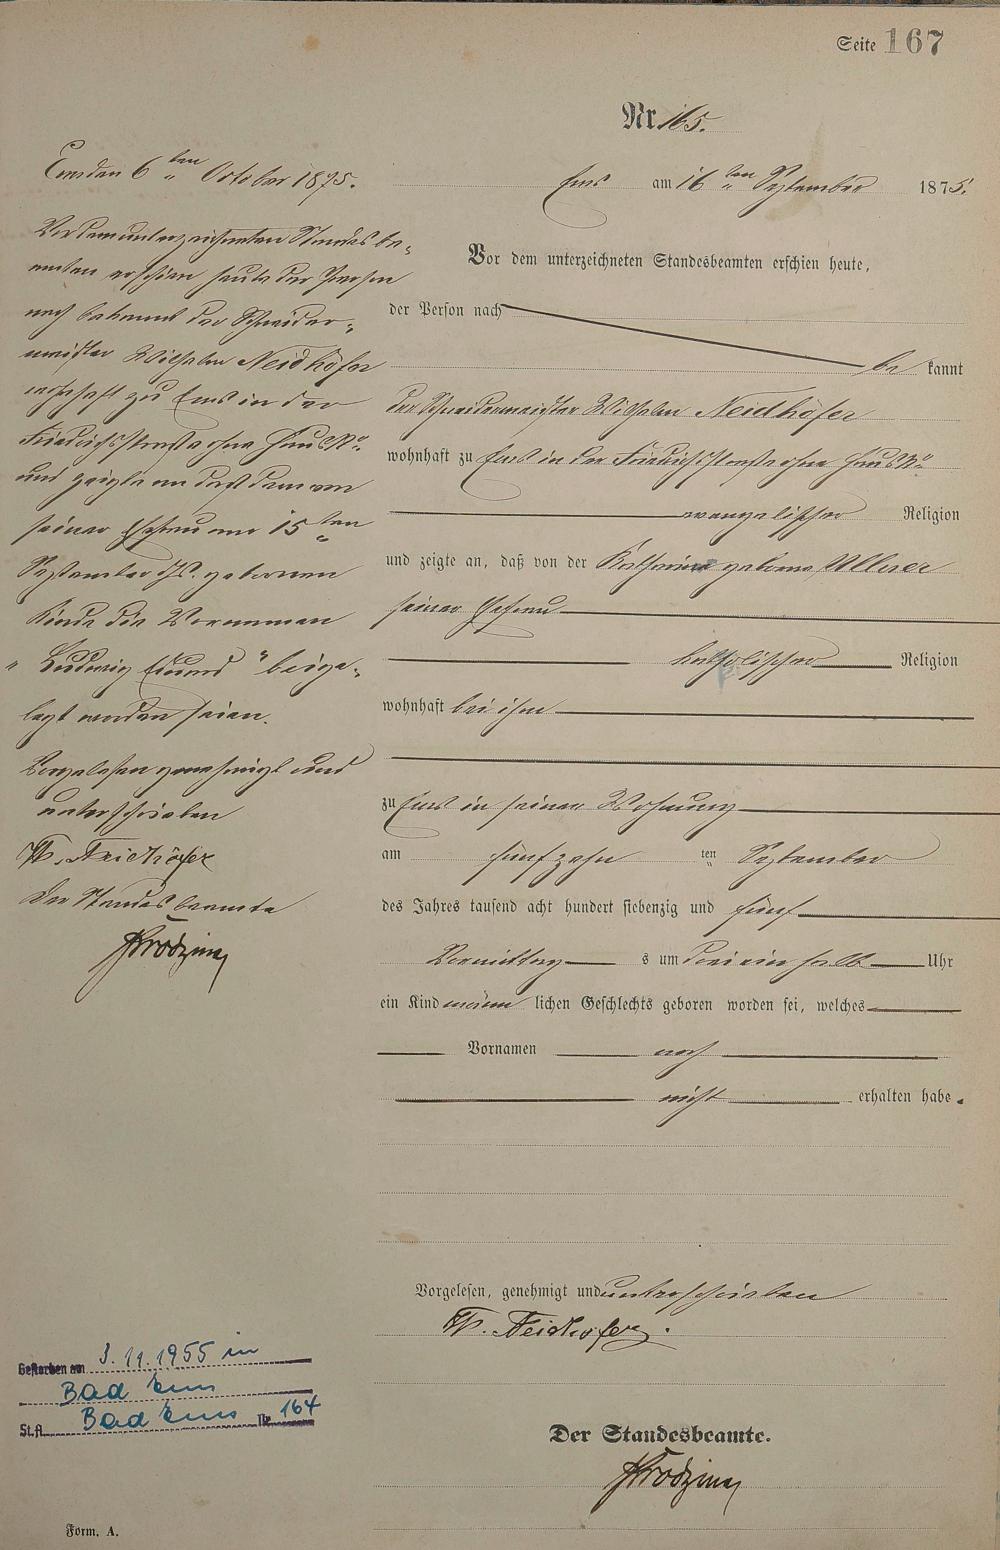 Seite 167
Nr. 165.
Ems am 16ten September 1875.
Vor dem unterzeichneten Standesbeamten erschien heute,
der Person nach
be kannt
der Schneidermeister Wilhelm Neidhöfer
wohnhaft zu Ems in der Friedrichsstraße ohne Haus No
evangelischer Religion
und zeigte an, daß von der Katharina geborne Ullmer
seiner Ehefrau
katholischer Religion
wohnhaft bei ihm
zu Ems in seiner Wohnung
am fünfzehn ten September
des Jahres tausend acht hundert siebenzig und fünf
Vormittag s um drei ein halb Uhr
ein Kind männ lichen Geschlechts geboren worden sei, welches
Vornamen noch
nicht erhalten habe.
Vorgelesen, genehmigt und unterschrieben
W. Neidhöfer.
Der Standesbeamte.
Ems den 6ten October 1875.
Vor dem unterzeichneten Standesbe-
amten erschien heute der Person
nach bekannt der Schneider-
meister Wilhelm Neidhöfer
wohnhaft zu Ems in der
Friedrichsstraße ohne Haus No
und zeigte an daß dem von
seiner Ehefrau am 15ten
September d. Js. geborenen
Kinde die Vornamen
"Ludwig Eduard" beige-
legt worden seien.
Vorgelesen genehmigt und
unterschrieben
W. Neidhöfer
Der Standesbeamte
Gestorben am 3.11.1955 in
Bad Ems
St.A. Bad Ems Nr. 164
Form. A.